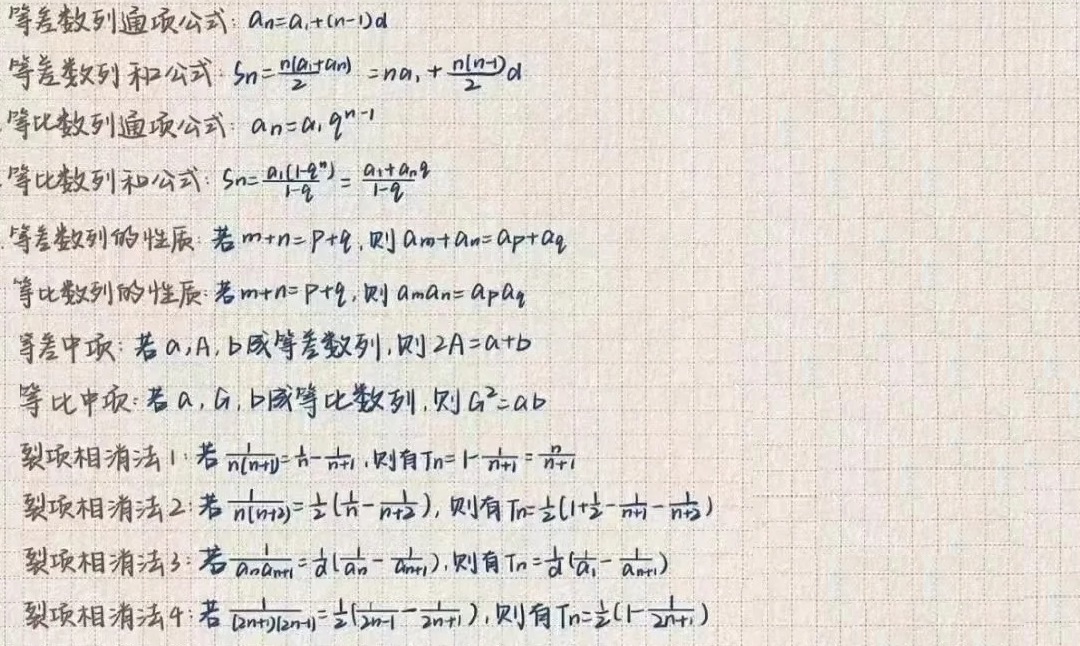 等差数列通项公式: an=a₁+(n-1)d
等差数列和公式: Sn=n(a₁+an)/2=na₁+n(n-1)/2 d
等比数列通项公式: an=a₁qⁿ⁻¹
等比数列和公式: Sn=a₁(1-qⁿ)/1-q=a₁+anq/1-q
等差数列的性质: 若m+n=p+q,则am+an=ap+aq
等比数列的性质: 若m+n=p+q,则aman=apaq
等差中项: 若a,A,b成等差数列,则2A=a+b
等比中项: 若a,G,b成等比数列,则G²=ab
裂项相消法1: 若1/n(n+1)=1/n-1/n+1,则有Tn=1-1/n+1=n/n+1
裂项相消法2: 若1/n(n+2)=1/2(1/n-1/n+2),则有Tn=1/2(1+1/2-1/n+1-1/n+2)
裂项相消法3: 若1/anan+1=1/d(1/an-1/an+1),则有Tn=1/d(1/a₁-1/an+1)
裂项相消法4: 若1/(2n+1)(2n-1)=1/2(1/2n-1-1/2n+1),则有Tn=1/2(1-1/2n+1)